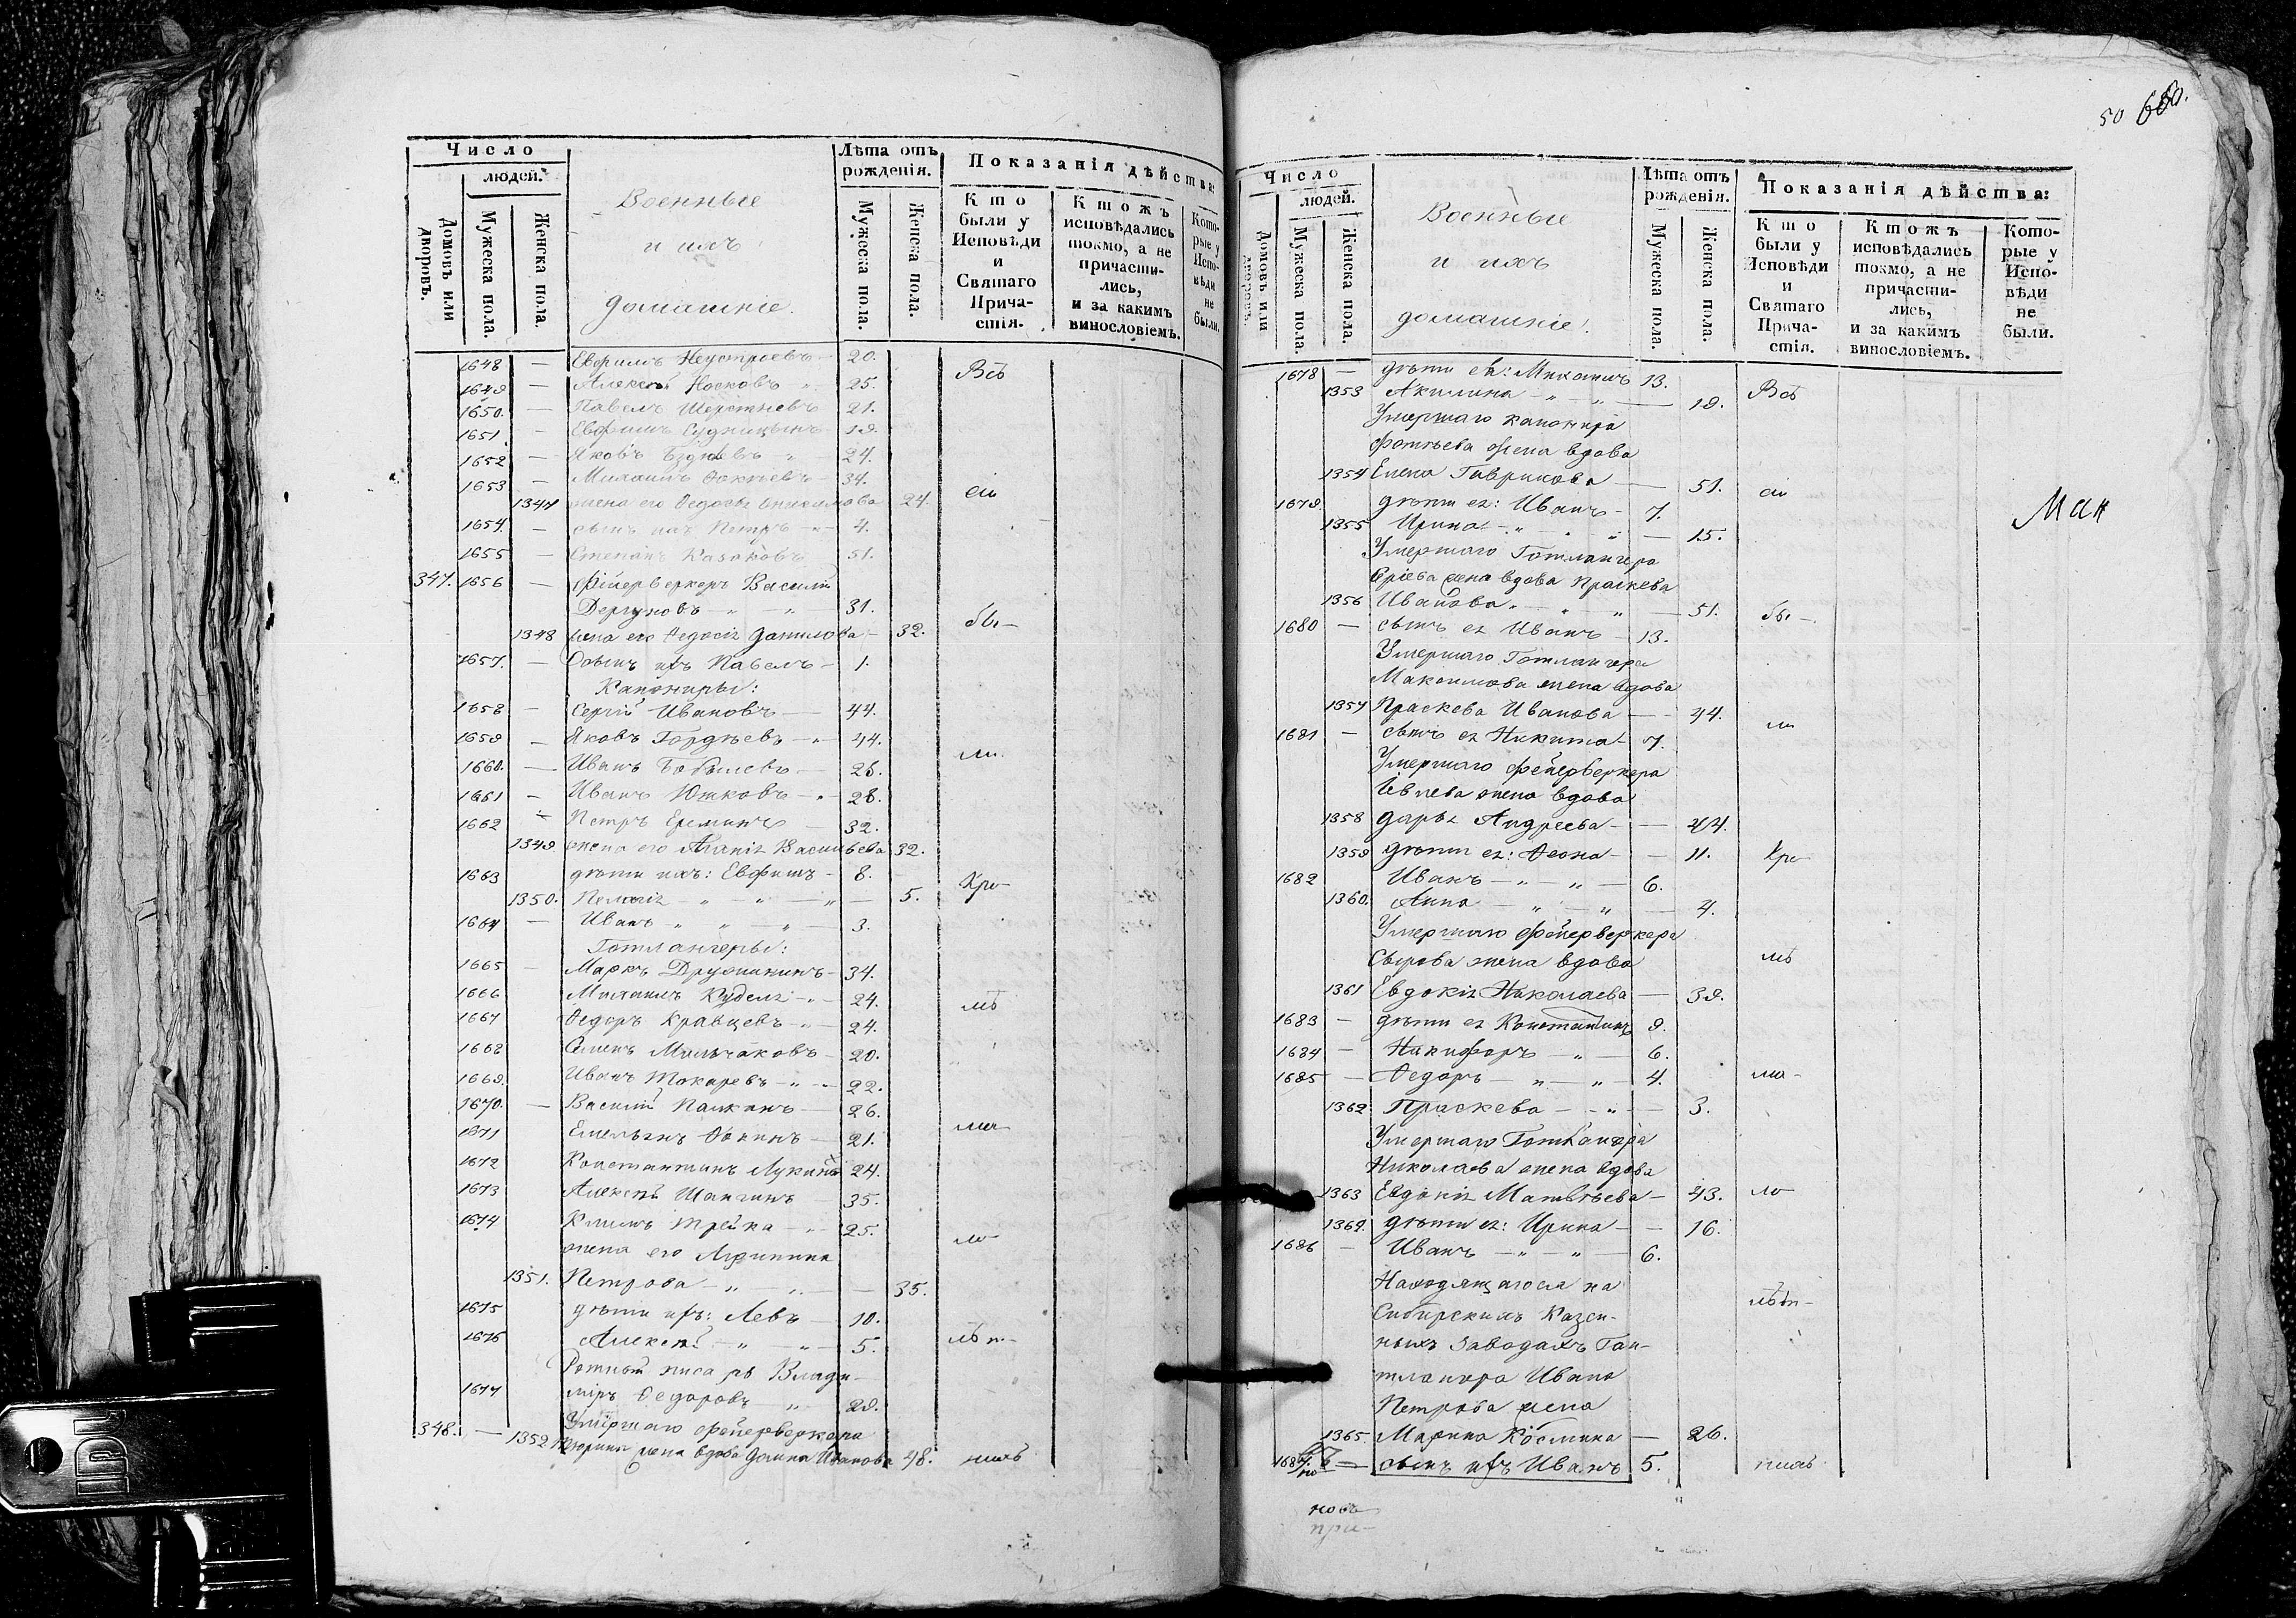 Число
людей.
Домовъ или дворовъ.
Мужеска пола.
Женска пола.
Военные
и ихъ
домашніе.
Лѣта отъ рожденія.
Мужеска пола.
Женска пола.
Показанія дѣйства:
Кто были у Исповѣди и Святаго Прича-стія.
Ктожъ исповѣдались токмо, а не причасти-лись, и за какимъ винословіемъ.
Кото-рые у Испо-вѣди не были.
1648 — Евфимъ Неустроевъ — 20. Всѣ
1649 — Алексѣй Носковъ 25.
1650. — Павелъ Шерстневъ 21.
1651 — Евфимъ 19.
1652 — Яковъ 24.
1653 — Михаилъ Фокѣевъ — 34.
1347 жена его Федосья Анисимова 24. сіи
1654. — сынъ ихъ Петръ — 4.
1655 — Степанъ Казаковъ 51.
347. 1656 — Фейерверкеръ Василій
Дергуновъ — " — " — 31.
1348 жена его Федосія Данилова — 32. бы —
1657. — Сынъ ихъ Павелъ — 1.
Канониры:
1658 — Сергій Ивановъ — 44.
1659 — Яковъ Гордѣевъ — 44.
1660. — Иванъ Бобылевъ — 26. ли
1661 — Иванъ Юшковъ — 28.
1662 — Петръ Ереминъ 32.
1349. жена его Агапія Васильева 32.
1663 дѣти ихъ: Евфимъ — 8.
1350. Пелагія — " — " — 5. Хра-
1664 — Иванъ — " — " — 3.
Готлангеры:
1665 — Маркъ Дружининъ — 34.
1666 Михаилъ Кубель — 24. мѣ
1667 Федоръ Кравцевъ — 24.
1668 Семенъ Мильчаковъ — 20.
1669. Иванъ Токаревъ — " — 22.
1670. — Василій Пашкинъ — 26.
1671 Емельянъ Фокинъ — 21. ма
1672 Константинъ Лукинъ 24.
1673 Алексѣй Шангинъ 35.
1674 Климъ Трейка — 25.
жена его Агрипина ло
1351. Петрова — " — " — 35.
1675 дѣти ихъ: Левъ — 10.
1676 Алексѣй — " — " — 5. лѣт-
Ротный писарь Влади-
1677 міръ Федоровъ — " 29.
Умершаго фейерверкера
348. — 1352 жена вдова Ивановa 48. нихъ
50 60.
Число
людей.
Домовъ или дворовъ.
Мужеска пола.
Женска пола.
Военные
и ихъ
домашніе.
Лѣта отъ рожденія.
Мужеска пола.
Женска пола.
Показанія дѣйства:
Кто были у Исповѣди и Святаго Прича-стія.
Ктожъ исповѣдались токмо, а не причасти-лись, и за какимъ винословіемъ.
Кото-рые у Испо-вѣди не были.
1678 — дѣти ея: Михаилъ 13.
1353 Акилина — " — " — 19. Всѣ
Умершаго канонира
Фотѣева жена вдова
1354 Елена Гаврилова — 51. сіи
1679. дѣти ея: Иванъ — 7.
1355 Ирина — " — " — 15.
Мак
Умершаго Готлангера
жена вдова Праскева
1356 Иванова — " — " — 51. бы —
1680 — сынъ ея Иванъ — 13.
Умершаго Готлангера
Максимова жена вдова
1357 Праскева Иванова — 44. ли
1681 — сынъ ея Никита — 7.
Умершаго Фейерверкера
Іевлева жена вдова
1358 Дарья Андреева — — 44.
1359 дѣти ея: Феона — — 11. Хра-
1682 Иванъ — " — " — 6.
1360. Анна — " — " — 4.
Умершаго Фейерверкера
Сырова жена вдова мѣ
1361 Евдокія Николаева — 39.
1683 — дѣти ея Константинъ 9.
1684 — Никифоръ — " — 6.
1685 — Федоръ — " — " — 4. ма-
1362 Праскева — " — 3.
Умершаго Готлангера
Николаева жена вдова
1363 Евдокія Матвѣева — 43. ло
1364. дѣти ея: Ирина — — 16.
1686 — Иванъ — " — " — 6.
Находящагося на
Сибирскихъ Казен- лѣт-
ныхъ заводахъ Ган-
тлангера Ивана
Петрова жена
1365. Марина Козмина — 26.
1687 — сынъ ихъ Иванъ 5. нихъ
новъ
при-